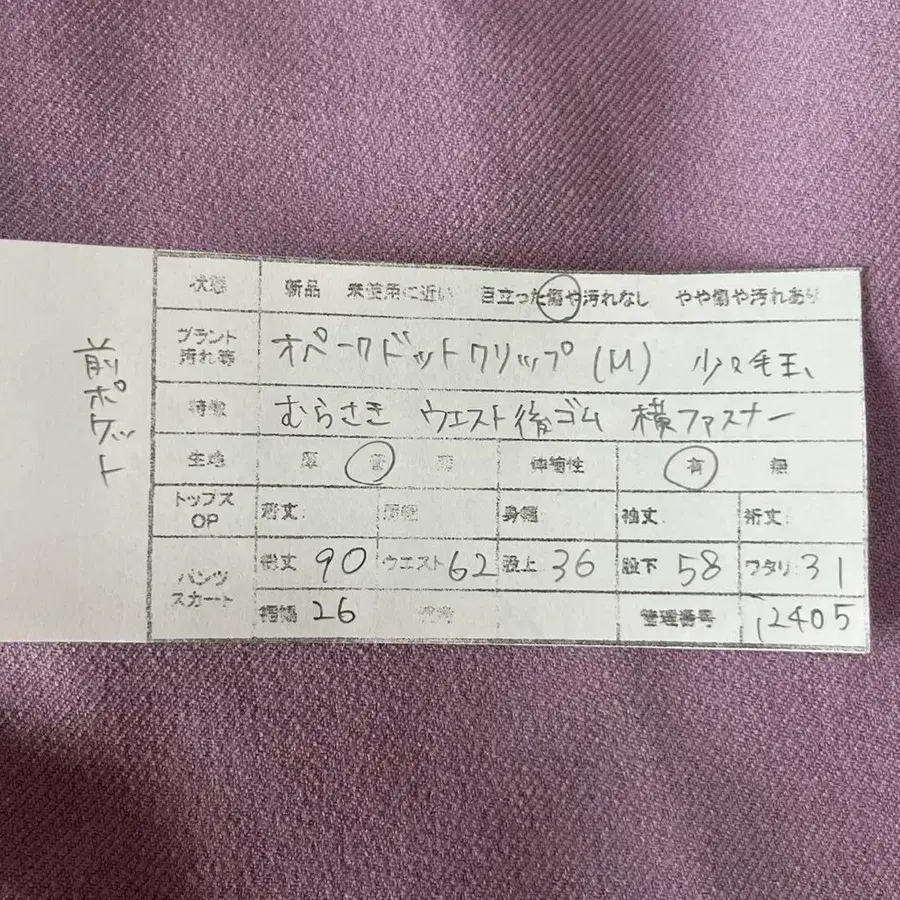 前ポケット
状態 新品 未使用に近い 目立った傷や汚れなし やや傷や汚れあり
ブランド 汚れ等 オペークドットクリップ (M) 少々毛玉、
特徴 むらさき ウエスト後ゴム 横ファスナー
生地 厚 普 薄 伸縮性 有 無
トップス OP 着丈: 肩幅 身幅: 袖丈: 裄丈:
パンツ スカート 総丈 90 ウエスト 62 股上 36 股下 58 ワタリ: 31
裾幅 26 管理番号 12405